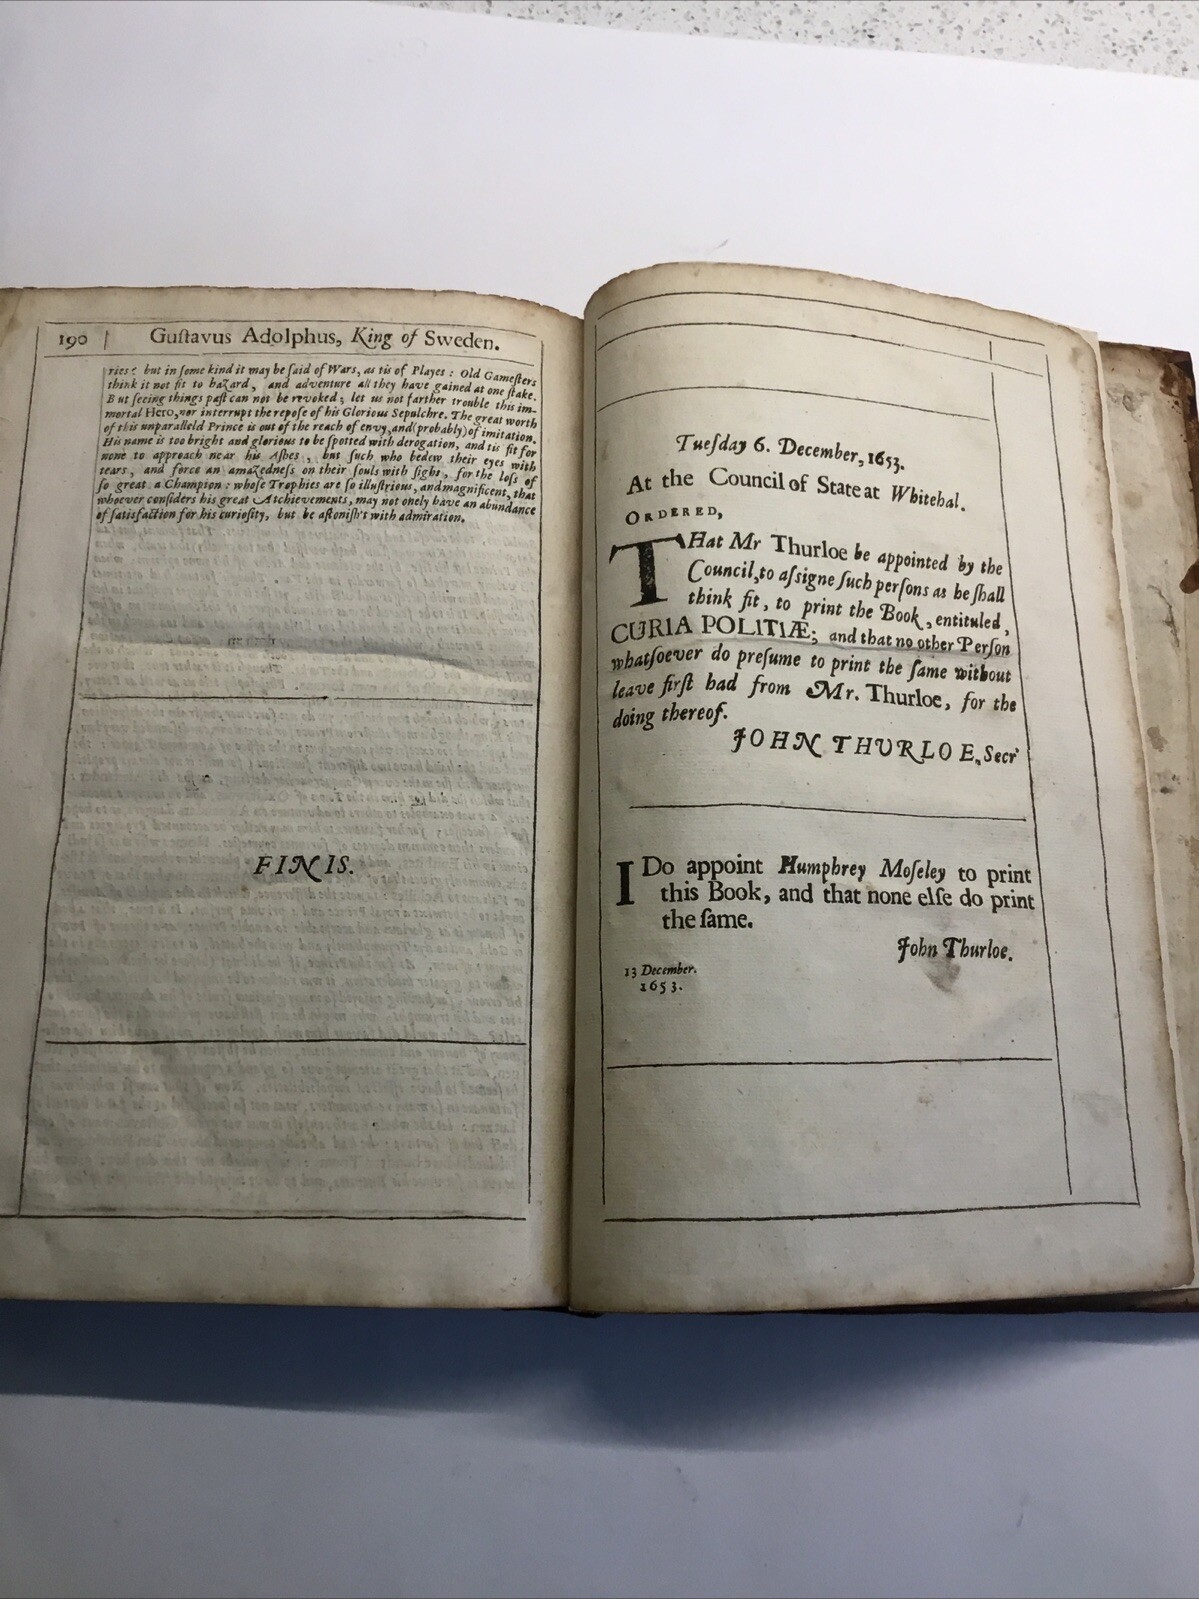 190 | Guſtavus Adolphus, King of Sweden.
ries: but in ſome kind it may be ſaid of Wars, as tis of Playes: Old Gameſters
think it not fit to hazard, and adventure all they have gained at one ſtake.
But ſeeing things paſt can not be revoked; let us not farther trouble this im-
mortal Hero, nor interrupt the repoſe of his Glorious Sepulchre. The great worth
of this unparalleld Prince is out of the reach of envy, and (probably) of imitation.
His name is too bright and glorious to be ſpotted with derogation, and tis fit for
none to approach near his Aſhes, but ſuch who bedew their eyes with
tears, and force an amazedneſs on their ſouls with ſighs, for the loſs of
ſo great a Champion: whoſe Trophies are ſo illuſtrious, and magnificent, that
whoever conſiders his great Atchievements, may not onely have an abundance
of ſatisfaction for his curioſity, but be aſtoniſh't with admiration.
FINIS.
Tueſday 6. December, 1653.
At the Council of State at Whitehal.
ORDERED,
THat Mr Thurloe be appointed by the
Council, to aſſigne ſuch perſons as he ſhall
think fit, to print the Book, entituled,
CURIA POLITIÆ; and that no other Perſon
whatſoever do preſume to print the ſame without
leave firſt had from Mr. Thurloe, for the
doing thereof.
JOHN THURLOE, Secr
I Do appoint Humphrey Moſeley to print
this Book, and that none elſe do print
the ſame.
John Thurloe.
13 December.
1653.